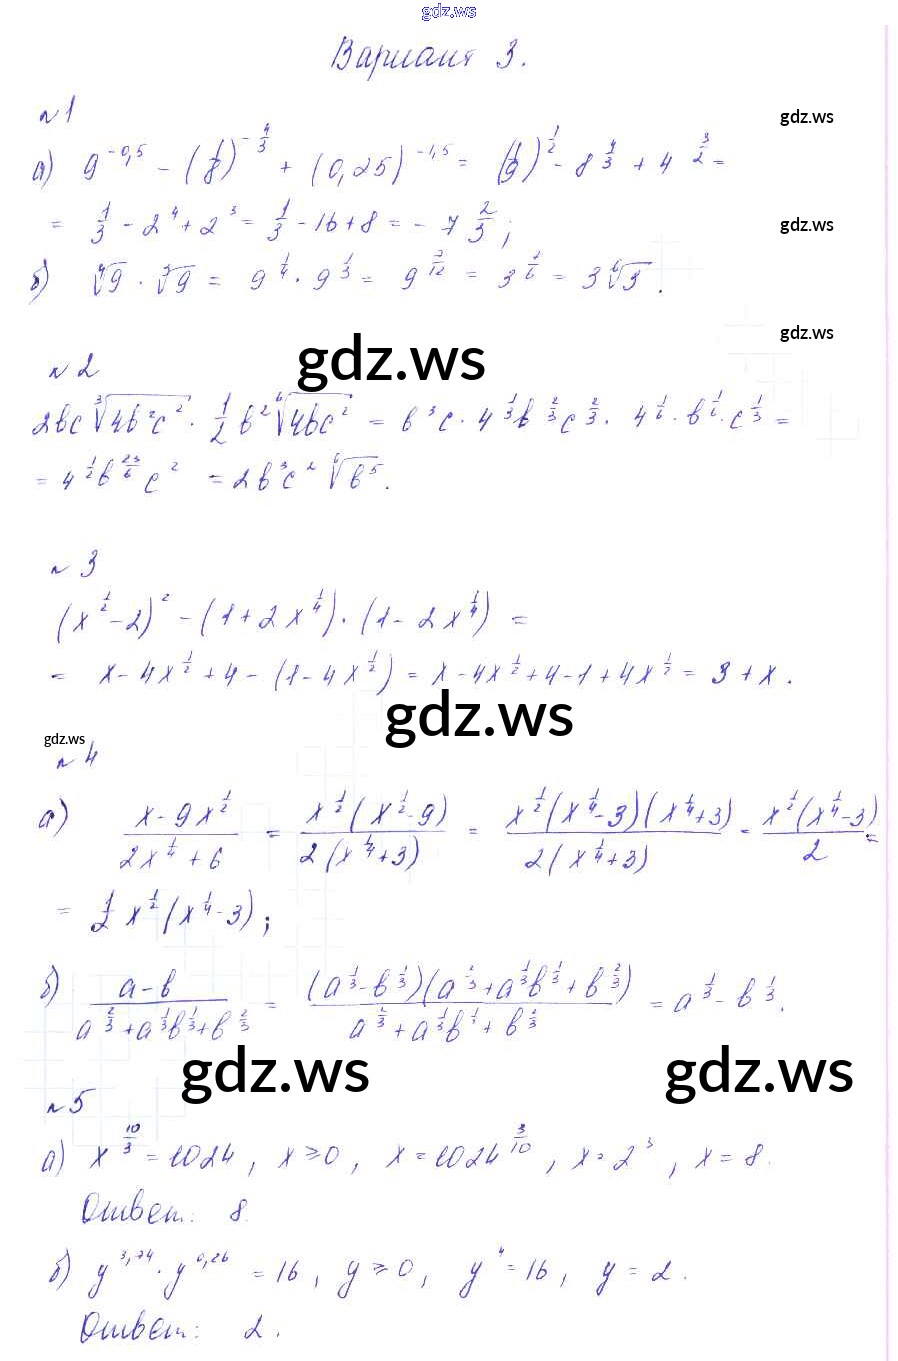 gdz.ws
Вариант 3.
№1
gdz.ws
а) 9^(-0,5) - (1/8)^(-4/3) + (0,25)^(-1,5) = (1/9)^(1/2) - 8^(4/3) + 4^(3/2) =
= 1/3 - 2^4 + 2^3 = 1/3 - 16 + 8 = -7 2/3;
gdz.ws
б) ⁴√9 · ³√9 = 9^(1/4) · 9^(1/3) = 9^(7/12) = 3^(1/6) = 3 ⁶√3.
gdz.ws
gdz.ws
№2
2bc ³√(4b²c²) · 1/2 b² ⁶√(4bc²) = b³c · 4^(1/3) b^(2/3) c^(2/3) · 4^(1/6) · b^(1/6) · c^(1/3) =
= 4^(1/2) b^(23/6) c² = 2b³c² ⁶√(b⁵).
№3
(x^(1/2) - 2)² - (1 + 2x^(1/4)) · (1 - 2x^(1/4)) =
= x - 4x^(1/2) + 4 - (1 - 4x^(1/2)) = x - 4x^(1/2) + 4 - 1 + 4x^(1/2) = 3 + x.
gdz.ws
gdz.ws
№4
а) (x - 9x^(1/2))/(2x^(1/4) + 6) = (x^(1/2)(x^(1/2) - 9))/(2(x^(1/4) + 3)) = (x^(1/2)(x^(1/4) - 3)(x^(1/4) + 3))/(2(x^(1/4) + 3)) = (x^(1/2)(x^(1/4) - 3))/2 =
= 1/2 x^(1/2)(x^(1/4) - 3);
б) (a - b)/(a^(2/3) + a^(1/3)b^(1/3) + b^(2/3)) = ((a^(1/3) - b^(1/3))(a^(2/3) + a^(1/3)b^(1/3) + b^(2/3)))/(a^(2/3) + a^(1/3)b^(1/3) + b^(2/3)) = a^(1/3) - b^(1/3).
gdz.ws
gdz.ws
№5
а) x^(10/3) = 1024, x ≥ 0, x = 1024^(3/10), x = 2³, x = 8.
Ответ: 8
б) y^(3,74) · y^(0,26) = 16, y ≥ 0, y⁴ = 16, y = 2.
Ответ: 2.